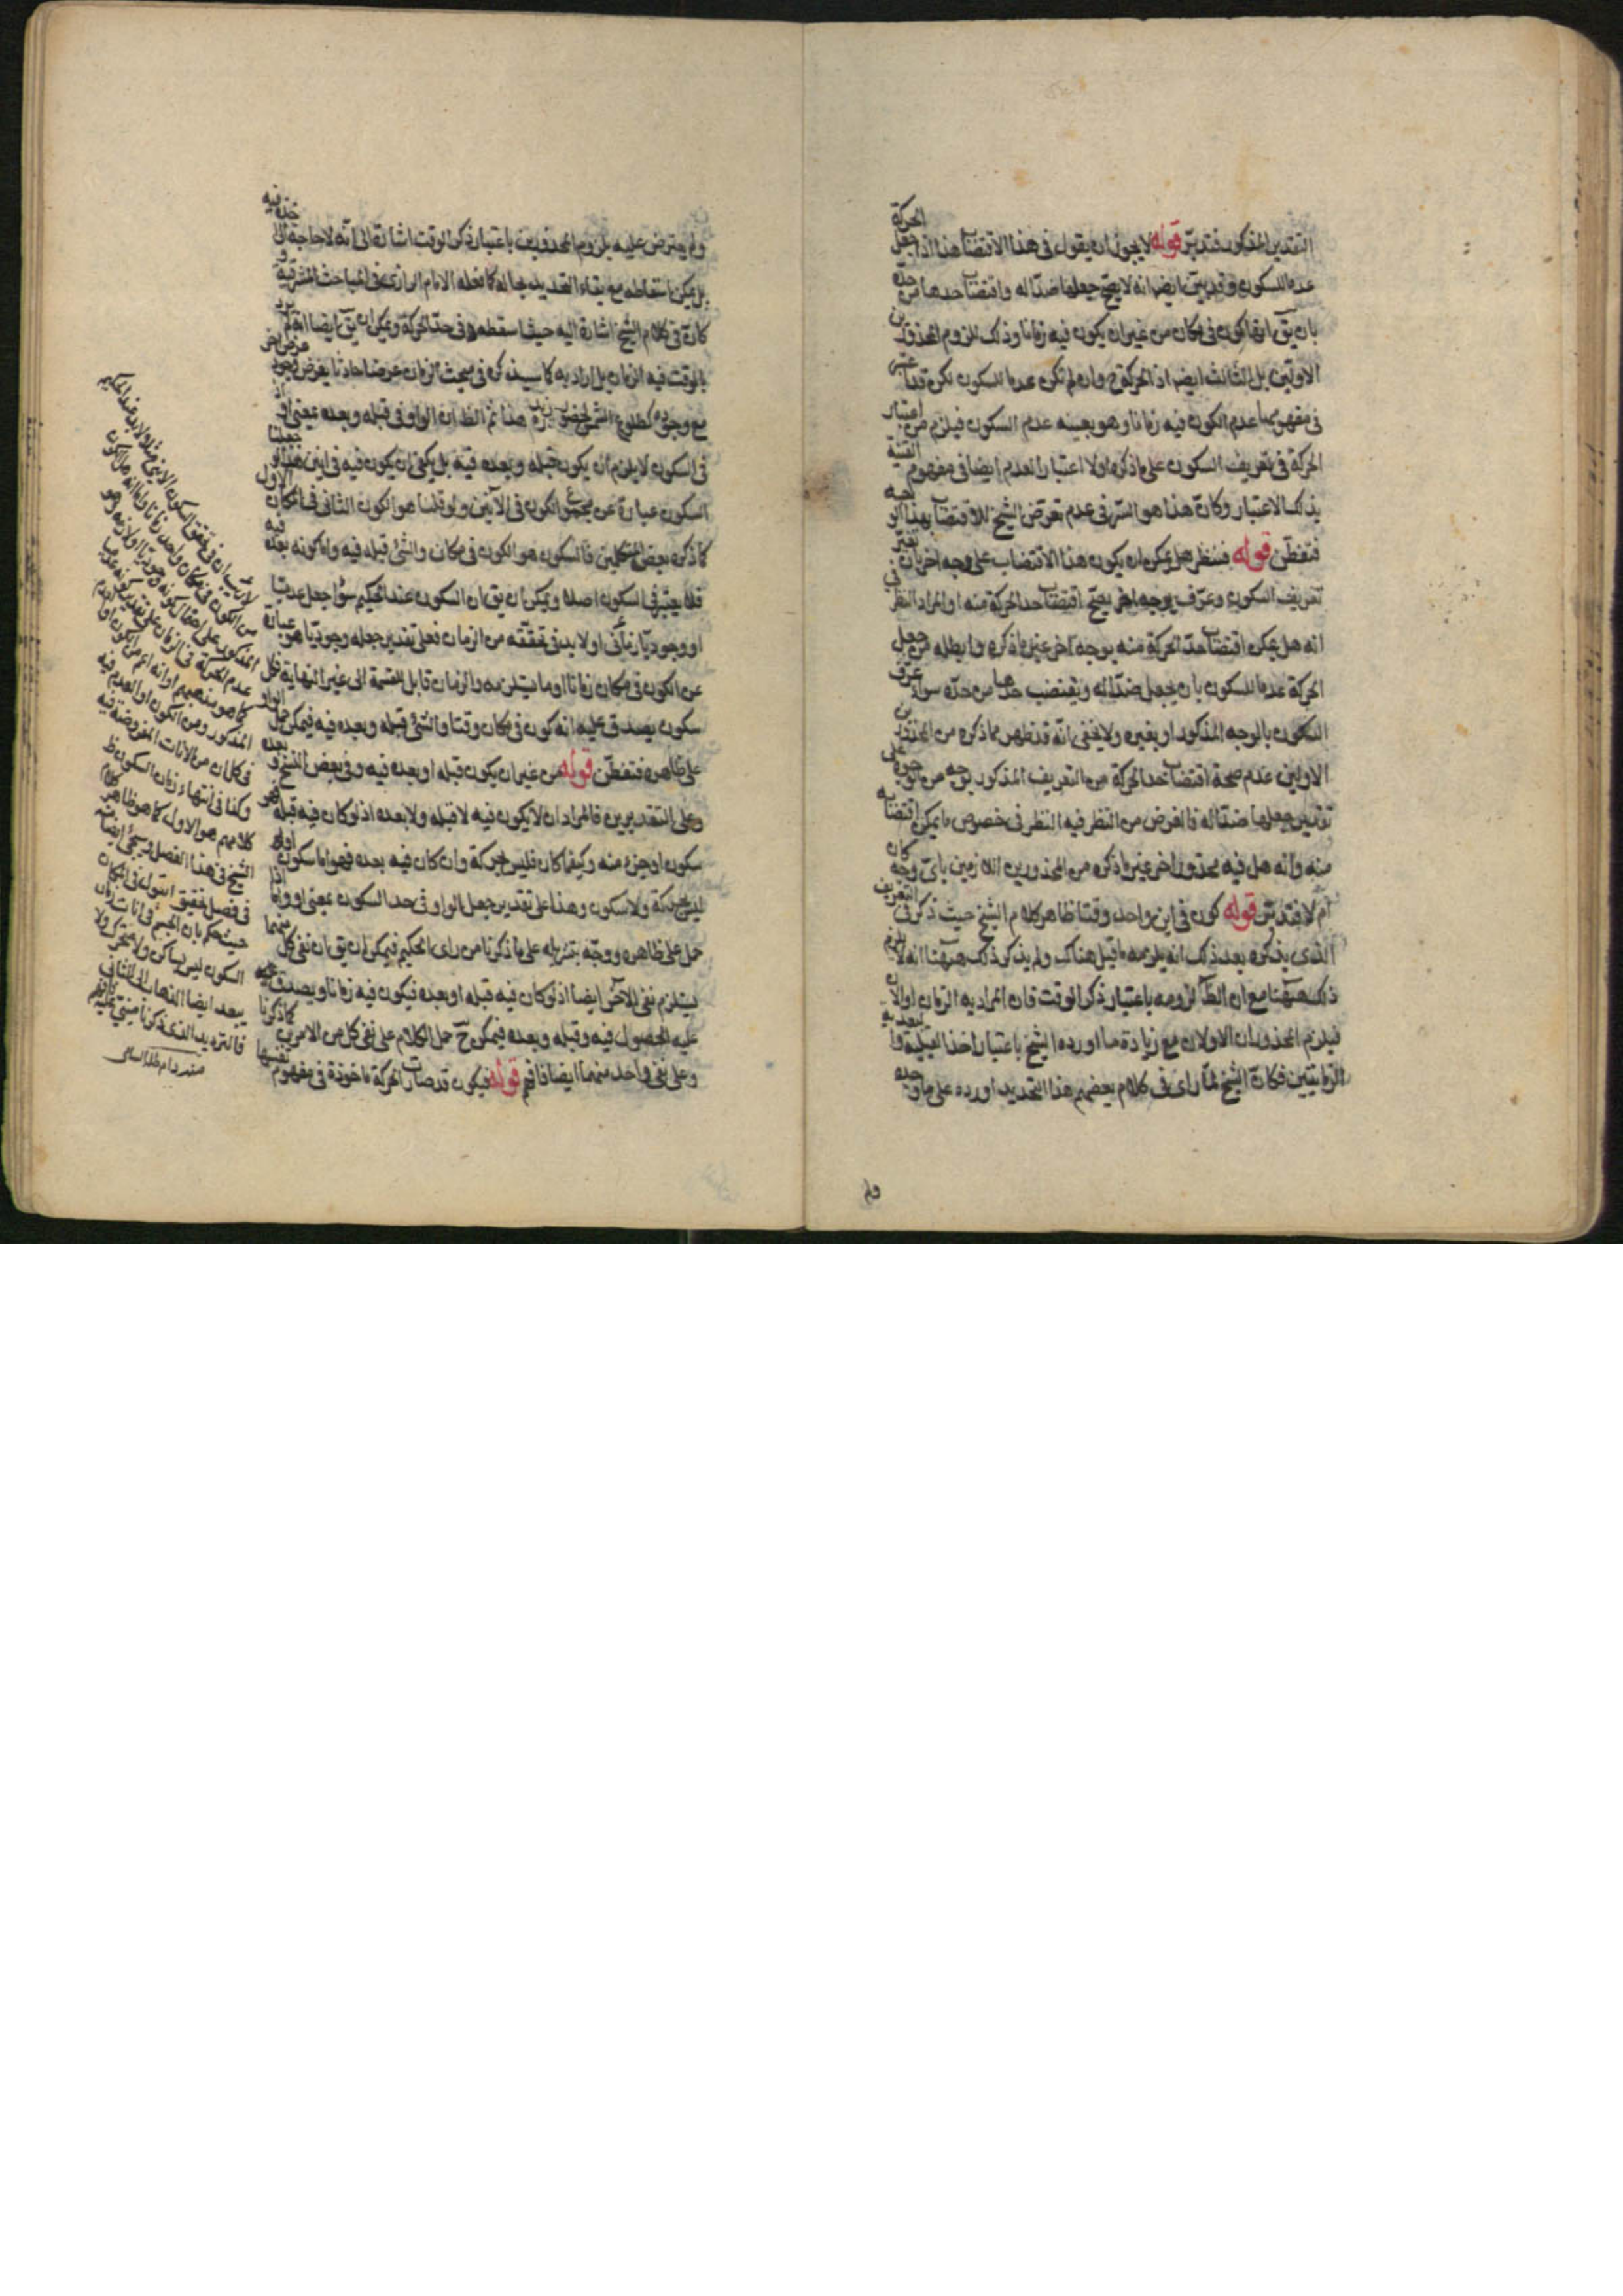 التقدير المذكور فتدبر قوله لا يجوز ان يقول فى هذا الاقتضاب هذا اذا جعل الحركة
عدما للسكون وقد بين ايضا انه لا يصح جعلها ضدا له واقتضاب حدها من حده
بان يق انها كون فى مكان من غير ان يكون فيه زمانا وذلك للزوم المحذورين
الاولين بل الثالث ايضا اذ الحركة ح وان لم تكن عدما للسكون لكن قد اعتبر
فى مفهومها عدم الكون فيه زمانا وهو بعينه عدم السكون فيلزم من اعتبار
الحركة فى تعريف السكون على ما ذكره اولا اعتبار العدم ايضا فى مفهوم القنية
بذلك الاعتبار وكان هذا هو السر فى عدم تعرض الشيخ للاقتضاب بهذا الوجه
فتفطن قوله فننظر هل يمكن ان يكون هذا الاقتضاب على وجه اخر بان يغير
تعريف السكون وعرف بوجه اخر يصح اقتضاب حد الحركة منه او المراد النظر فى
انه هل يمكن اقتضاب حد الحركة منه بوجه آخر غير ما ذكره وابطله من جعل
الحركة عدما للسكون بان يجعل ضدا له ويقتضب حدها من حده سواء عرف
السكون بالوجه المذكور او بغيره ولا يخفى انه قد ظهر مما ذكره من المحذورين
الاولين عدم صحة اقتضاب حد الحركة من التعريف المذكور بوجه من الوجوه على
تقدير جعلها ضدا له فالغرض من النظر فيه النظر فى خصوص ما يمكن اقتضابه
منه وانه هل فيه محذور اخر غير ما ذكره من المحذورين اللازمين باى وجه كان
ام لا فتدبر قوله كون فى اين واحد وقتا ظاهر كلام الشيخ حيث ذكر فى التعريف
الذى يذكره بعد ذلك انه يلزمه ما قيل هناك ولم يذكر ذلك ههنا انه لا يلزم
ذلك ههنا مع ان الظ لزومه باعتبار ذكر الوقت فان المراد به الزمان او الآن
فيلزم المحذوران الاولان مع زيادة ما اورده الشيخ باعتبار اخذ القبلية والبعدية
الزمانيتين فكان الشيخ لما راى فى كلام بعضهم هذا التحديد اورده على ما وجده
ولم
ولم يعترض عليه بلزوم المحذورين باعتبار ذكر الوقت اشارة الى انه لا حاجة الى اخذه فيه
بل يمكن اسقاطه مع بقاء التحديد بحاله كما فعله الامام الرازى فى المباحث المشرقية و
كان فى كلام الشيخ اشارة اليه حيث اسقطه فى حد الحركة ويمكن ان يق ايضا انه لم يرد
بالوقت فيه الزمان بل اراد به كما سيذكره فى مبحث الزمان عرضا حادثا يفرض وجود عرض اخر
مع وجوده كطلوع الشمس لحضور زيد هذا ثم الظ ان الواو فى قبله وبعده بمعنى او اذ
فى السكون لا يلزم ان يكون قبله وبعده فيه بل يكفى ان يكون فيه فى اينى جعلنا
السكون عبارة عن مجموع الكون فى الآنين ولو قلنا هو الكون الثانى فى المكان الاول
كما ذكره بعض المتكلمين فالسكون هو الكون فى مكان والشئ قبله فيه واما كونه بعده فيه
فلا يعتبر فى السكون اصلا ويمكن ان يق ان السكون عند الحكيم سواء جعل عدميا
او وجوديا زمانى او لا بد فى تحققه من الزمان فعلى تقدير جعله وجوديا هو عبارة
عن الكون فى مكان زمانا او ما يستلزمه والزمان قابل للقسمة الى غير النهاية فكل
سكون يصدق عليه انه كون فى مكان وقتا والشئ قبله وبعده فيه فيمكن حمل الواو
على ظاهره فتفطن قوله من غير ان يكون قبله او بعده فيه وفى بعض النسخ وبعده
وعلى التقديرين فالمراد ان لا يكون فيه لا قبله ولا بعده اذ لو كان فيه قبله فهو
سكون او جزء منه وكيفما كان فليس بحركة وان كان فيه بعده فهو اما سكون اولا
ليس بحركة ولا سكون وهذا على تقدير جعل الواو فى حد السكون بمعنى او واما اذا
حمل على ظاهره ووجه بتنزيله على ما ذكرنا من راى الحكيم فيمكن ان يق ان نفى كل منهما
يستلزم نفى الآخر ايضا اذ لو كان فيه قبله او بعده فيكون فيه زمانا ويصدق عليه
عليه الحصول فيه وقبله وبعده فيمكن ح حمل الكلام على نفى كل من الامرين كما ذكرنا
وعلى نفى واحد منهما ايضا فافهم قوله فيكون قد صارت الحركة ماخوذة فى مفهوم نفسها
لا ريب ان فى تحقق السكون
من الكون فى مكان واحد زمانا
المذكور على
عدم الحركة فى الزمان على تقدير كونه عدميا
كما هو مذهبهم او انه اعم من الكون
المذكور ومن الكون او العدم فيه
فى كل ان من الآنات المفروضة فيه
وكذا فى انتهاء زمان السكون ظ
كلامهم هو الاول كما هو ظاهر كلام
الشيخ فى هذا الفصل وسيجئ ايضا منه
فى فصل تحقيق القول فى المكان
حيث حكم بان الجسم فى آنات زمان
السكون ليس بساكن ولا متحرك ولا
يبعد ايضا الذهاب الى الثانى
فالترديد الذى ذكرنا مبنى عليه فافهم
منه دام ظله العالى